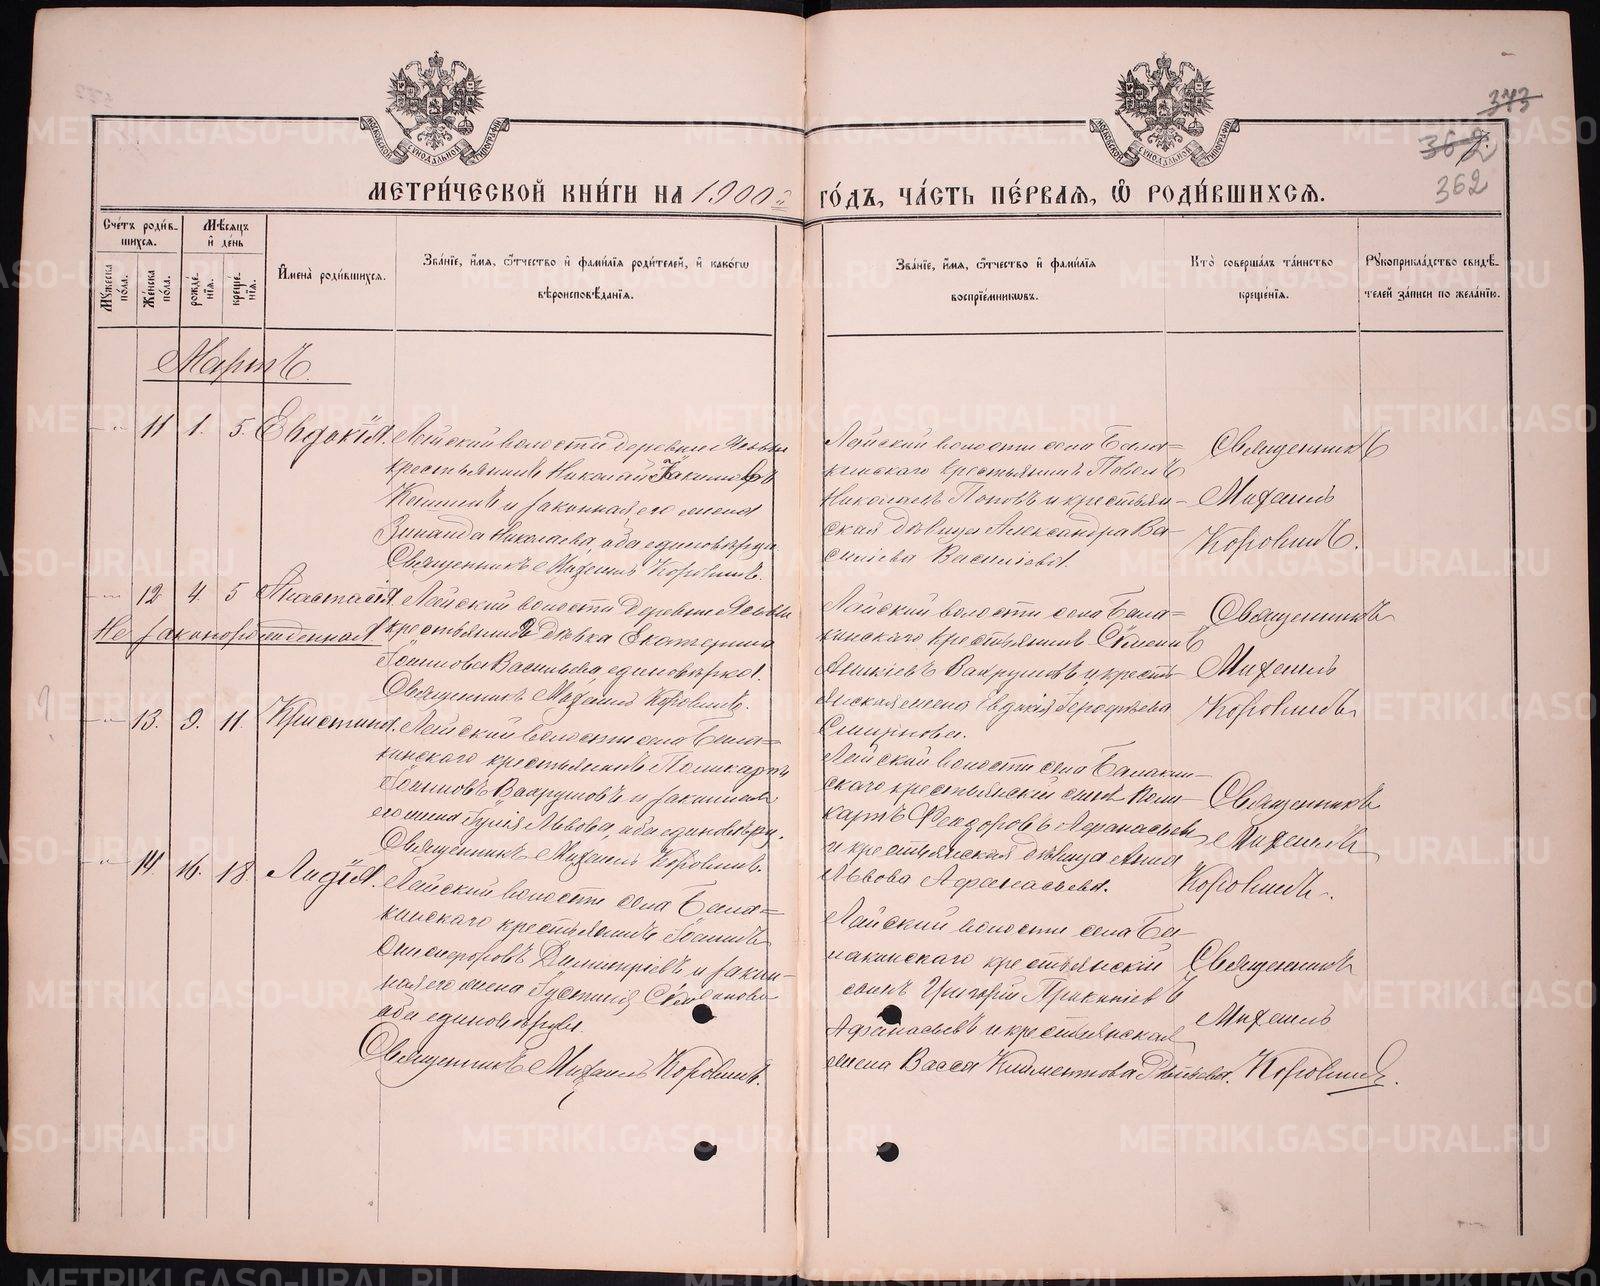 373
362
362
МЕТРИ́ЧЕСКОЙ КНИ́ГИ НА 1900й ГО́ДЪ, ЧА́СТЬ ПЕ́РВАЯ, Ѡ РОДИ́ВШИХСЯ.
Счетъ роди́вшихся.
Му́жеска по́ла.
Же́нска по́ла.
Мѣсяцъ и день
рожде́нїя.
креще́нїя.
Имена̀ роди́вшихся.
Зва́нїе, имя, отчество и фами́лїя роди́телей, и како́гѡ вѣроисповѣданїя.
Зва́нїе, имя, отчество и фами́лїя воспрїе́мникѡвъ.
Кто̀ соверша́лъ та́инство креще́нїя.
Рукоприкла́дство свидѣтелей за́писи по жела́нїю.
Мартъ.
11 1. 5. Евдокія.
Лайской волости деревни
крестьянинъ Николай Іакимовъ
и законная его жена
Николаева, оба единовѣрцы.
Священникъ Михаилъ Коровинъ.
Лайской волости села Бала=
кинскаго крестьянинъ Павелъ
Николаевъ Поповъ и крестьян-
ская дѣвица Александра Ва-
сильева Васильева.
Священникъ
Михаилъ
Коровинъ.
12 4. 5 Анастасія.
Незаконорожденная.
Лайской волости деревни
крестьянская дѣвка Екатерина
Іоаннова Васильева, единовѣрка.
Священникъ Михаилъ Коровинъ.
Лайской волости села Бала=
кинскаго крестьянинъ Симеонъ
Аникіевъ Вахрушевъ и кресть-
янская жена Евдокія
Смирнова.
Священникъ
Михаилъ
Коровинъ
13. 9. 11. Христина.
Лайской волости села Бала=
кинскаго крестьянинъ Поликарпъ
Іоанновъ Вахрушовъ и законная
его жена Іулія Львова, оба единовѣрцы.
Священникъ Михаилъ Коровинъ.
Лайской волости села Балакин-
скаго крестьянскій сынъ Поли-
карпъ Феодоровъ Афанасьевъ
и крестьянская дѣвица Анна
Львова Афанасьева.
Священникъ
Михаилъ
Коровинъ.
14 16. 18. Лидія.
Лайской волости села Бала=
кинскаго крестьянинъ Іоаннъ
Онисифоровъ Димитріевъ и закон-
ная его жена Іустинія
оба единовѣрцы.
Священникъ Михаилъ Коровинъ.
Лайской волости села Ба-
лакинскаго крестьянскій
сынъ Григорій Прокопіевъ
Афанасьевъ и крестьянская
жена Васса Климентова
Священникъ
Михаилъ
Коровинъ.